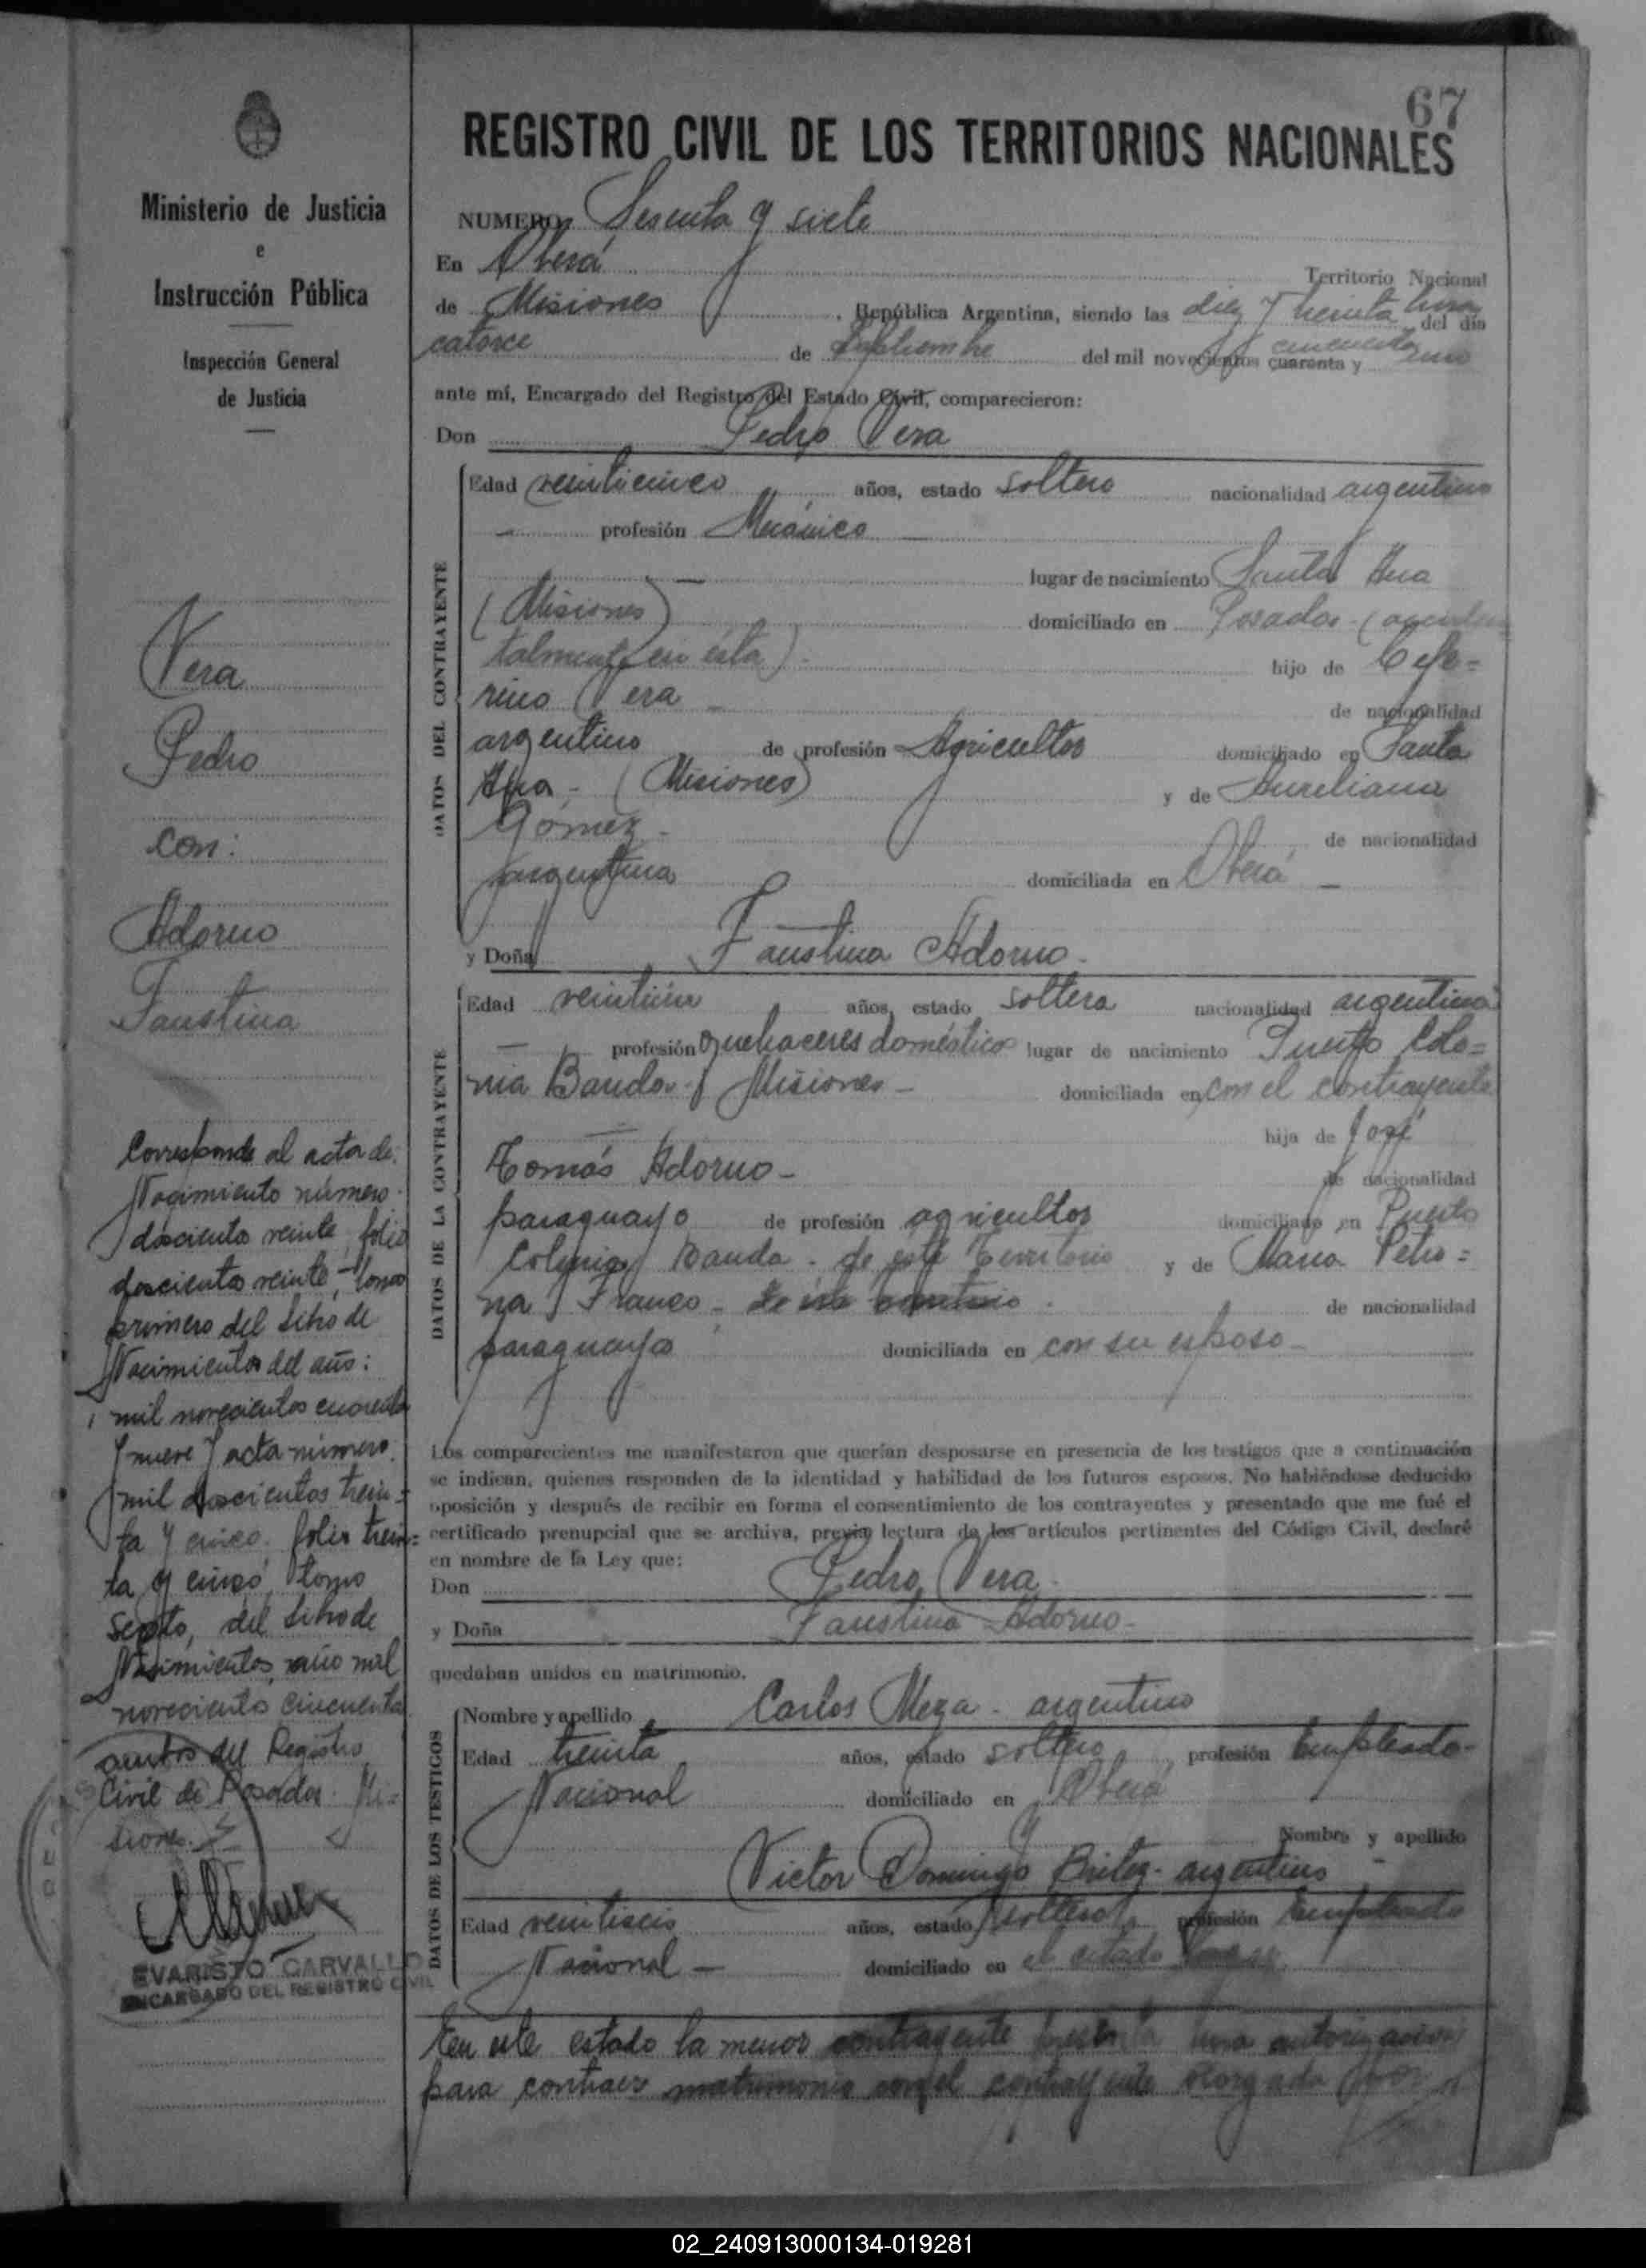 67
Ministerio de Justicia
e
Instrucción Pública
Inspección General
de Justicia
Vera
Pedro
con:
Adorno
Faustina
Corresponde al acta de
Nacimiento número
doscientos veinte, folio
doscientos veinte, tomo
primero del Libro de
Nacimientos del año:
mil novecientos cuarenta
y nueve y acta número
mil doscientos trein=
ta y cinco. folio trein=
ta y cinco, tomo
sexto, del Libro de
Nacimientos, año mil
novecientos cincuenta
ambos del Registro
Civil de Posadas. Mi=
siones.
EVARISTO CARVALLO
ENCARGADO DEL REGISTRO CIVIL
REGISTRO CIVIL DE LOS TERRITORIOS NACIONALES
NUMERO Sesenta y siete
En Oberá Territorio Nacional
de Misiones, República Argentina, siendo las diez y treinta horas del día
catorce de Septiembre del mil novecientos cuarenta y cincuenta uno
ante mí, Encargado del Registro del Estado Civil, comparecieron:
Don Pedro Vera
DATOS DEL CONTRAYENTE
Edad veinticinco años, estado soltero nacionalidad argentino
profesión Mecánico
lugar de nacimiento Santa Ana
(Misiones) domiciliado en Posadas - (acciden
talmente en ésta). hijo de Cefe=
rino Vera de nacionalidad
argentino de profesión Agricultor domiciliado en Santa
Ana - (Misiones) y de Aureliana
Gomez - de nacionalidad
argentina domiciliada en Oberá
y Doña Faustina Adorno.
DATOS DE LA CONTRAYENTE
Edad veintiún años, estado soltera nacionalidad argentina
profesión quehaceres doméstico lugar de nacimiento Puerto Colo=
nia Banda - Misiones domiciliada en con el contrayente
hija de José
Tomás Adorno - de nacionalidad
paraguayo de profesión agricultor domiciliado en Puerto
Colonia Banda - de este Territorio y de Maria Petro=
na Franco - de nacionalidad
paraguaya domiciliada en con su esposo
Los comparecientes me manifestaron que querían desposarse en presencia de los testigos que a continuación
se indican, quienes responden de la identidad y habilidad de los futuros esposos. No habiéndose deducido
oposición y después de recibir en forma el consentimiento de los contrayentes y presentado que me fué el
certificado prenupcial que se archiva, previa lectura de los artículos pertinentes del Código Civil, declaré
en nombre de la Ley que:
Don Pedro Vera
y Doña Faustina Adorno
quedaban unidos en matrimonio.
DATOS DE LOS TESTIGOS
Nombre y apellido Carlos Meza - argentino
Edad treinta años, estado soltero, profesión Empleado
Nacional domiciliado en Oberá
y Nombre y apellido
Victor Domingo Britez - argentino
Edad veintiseis años, estado soltero, profesión Empleado
Nacional domiciliado en el citado
En este estado la menor contrayente presenta una autorización
para contraer matrimonio con el contrayente otorgada por
02_240913000134-019281